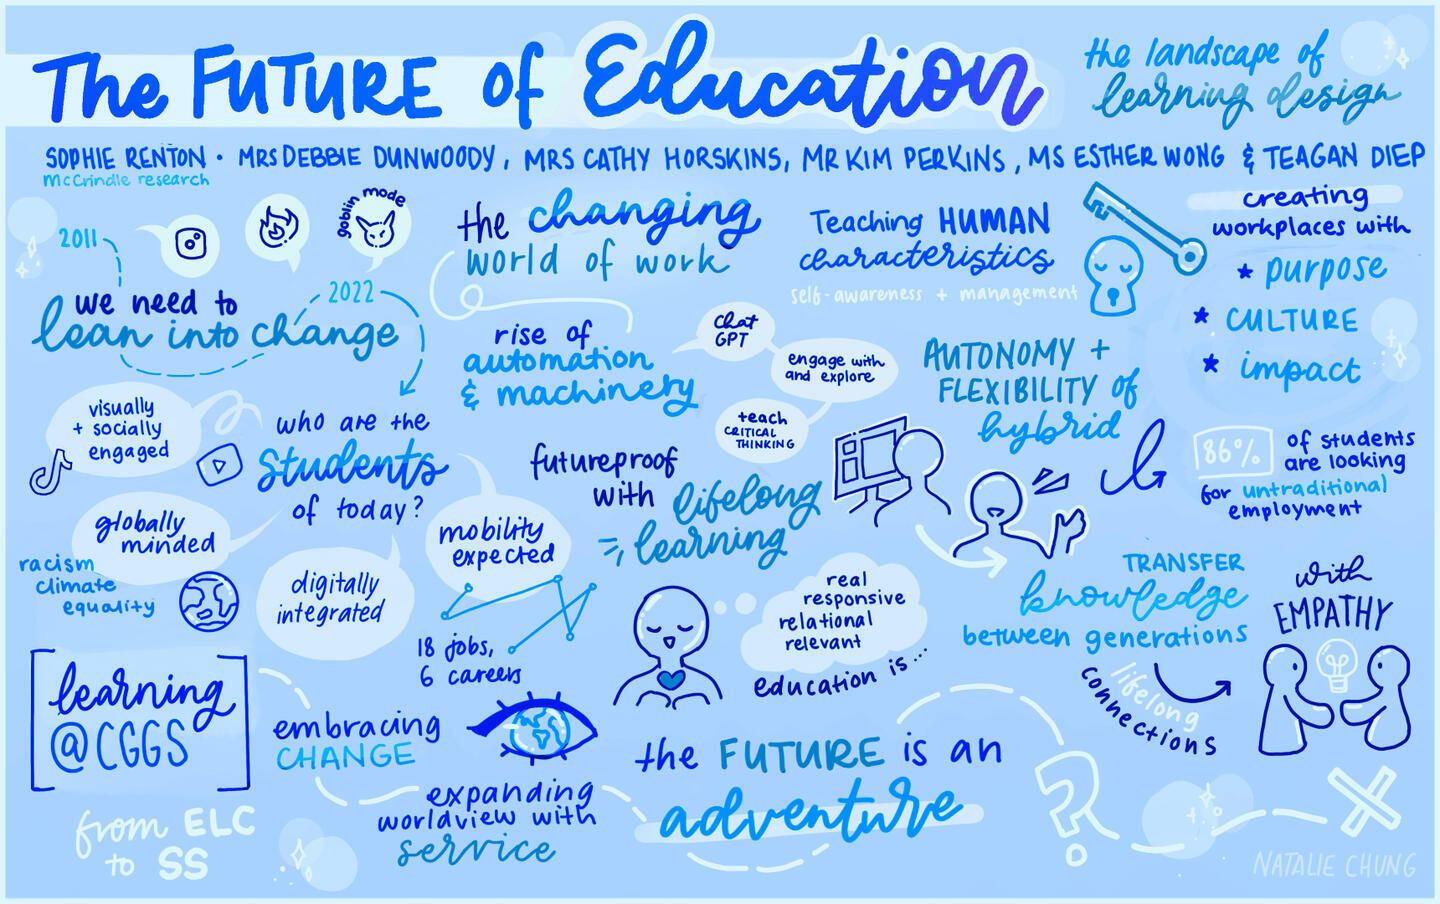 The FUTURE of Education
the landscape of
learning design
SOPHIE RENTON • MRS DEBBIE DUNWOODY, MRS CATHY HORSKINS, MR KIM PERKINS, MS ESTHER WONG & TEAGAN DIEP
McCrindle research
2011
goblin mode
we need to
lean into change
2022
the changing
world of work
rise of
automation
& machinery
Chat
GPT
engage with
and explore
teach
CRITICAL
THINKING
Teaching HUMAN
characteristics
self-awareness + management
creating
workplaces with
* purpose
* CULTURE
* impact
AUTONOMY +
FLEXIBILITY of
hybrid
86%
of students
are looking
for untraditional
employment
who are the
students
of today?
visually
+ socially
engaged
globally
minded
racism
climate
equality
digitally
integrated
mobility
expected
18 jobs,
6 careers
futureproof
with lifelong
learning
real
responsive
relational
relevant
education is...
TRANSFER
knowledge
between generations
lifelong
connections
with
EMPATHY
learning
@CGGS
from ELC
to SS
embracing
CHANGE
expanding
worldview with
service
the FUTURE is an
adventure
?
NATALIE CHUNG